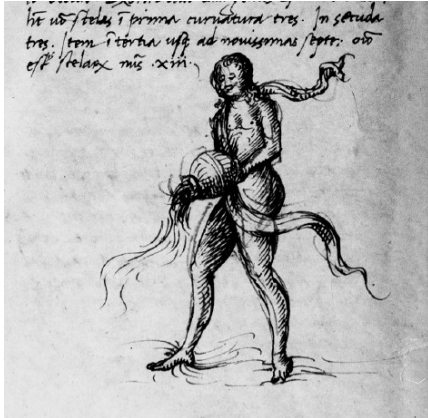 ht vō stelas ī prima curvatura tres. In secūda
tres. Item ī tertia usq; ad novissimas septē: oīō
est stelarx mīs .xiii.